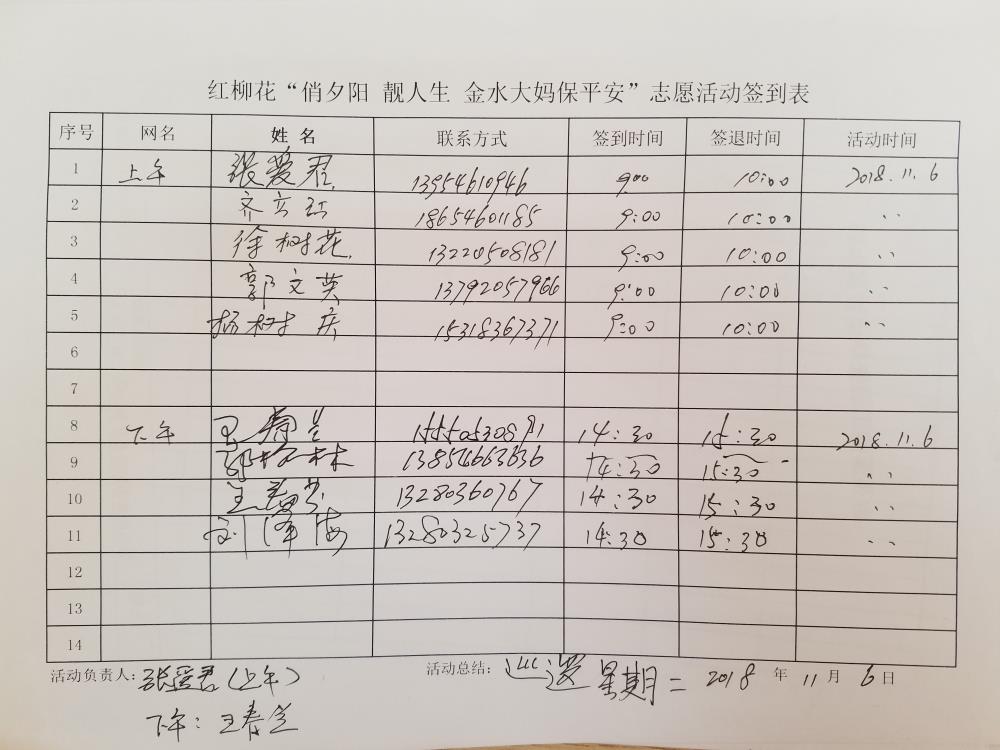 红柳花“俏夕阳 靓人生 金水大妈保平安”志愿活动签到表
序号 网名 姓名 联系方式 签到时间 签退时间 活动时间
1 上午 张爱君 13954610946 9:00 10:00 2018.11.6
2 齐立红 18654601185 9:00 10:00 〃
3 徐树花 13220508181 9:00 10:00 〃
4 郭文英 13792057966 9:00 10:00 〃
5 杨树庆 15318367371 9:00 10:00 〃
6
7
8 下午 王春兰 14:30 15:30 2018.11.6
9 13854663636 14:30 15:30 〃
10 13280360767 14:30 15:30 〃
11 刘泽海 13280325737 14:30 15:30 〃
12
13
14
活动负责人:张爱君(上午) 活动总结:巡逻 星期二 2018年11月6日
下午:王春兰